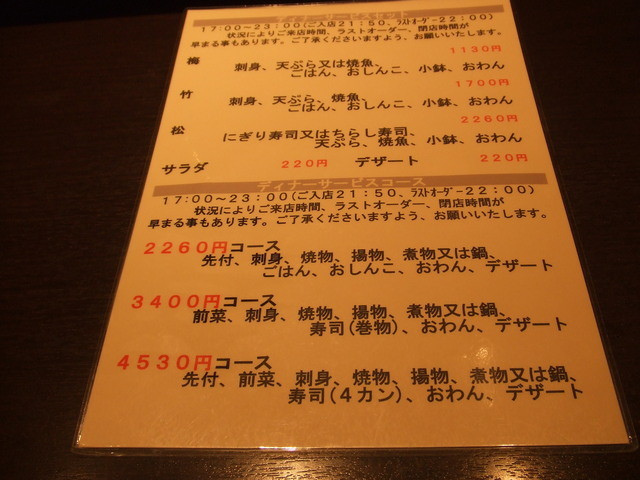 ディナーサービスセット
17:00～23:00(ご入店21:50、ラストオーダー22:00)
状況によりご来店時間、ラストオーダー、閉店時間が
早まる事もあります。ご了承くださいますよう、お願いいたします。
梅 1130円
刺身、天ぷら又は焼魚、
ごはん、おしんこ、小鉢、おわん
竹 1700円
刺身、天ぷら、焼魚、
ごはん、おしんこ、小鉢、おわん
松 2260円
にぎり寿司又はちらし寿司、
天ぷら、焼魚、小鉢、おわん
サラダ 220円 デザート 220円
ディナーサービスコース
17:00～23:00(ご入店21:50、ラストオーダー22:00)
状況によりご来店時間、ラストオーダー、閉店時間が
早まる事もあります。ご了承くださいますよう、お願いいたします。
2260円コース
先付、刺身、焼物、揚物、煮物又は鍋、
ごはん、おしんこ、おわん、デザート
3400円コース
前菜、刺身、焼物、揚物、煮物又は鍋、
寿司(巻物)、おわん、デザート
4530円コース
先付、前菜、刺身、焼物、揚物、煮物又は鍋、
寿司(4カン)、おわん、デザート